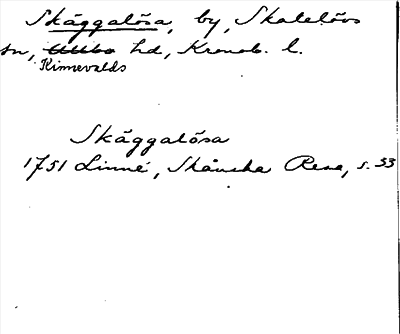 Skäggalösa, by, Skatelövs
sn, Allbo hd, Kronob. l.
Kinnevalds
Skäggalösa
1751 Linné, Skånska Resa, s. 33